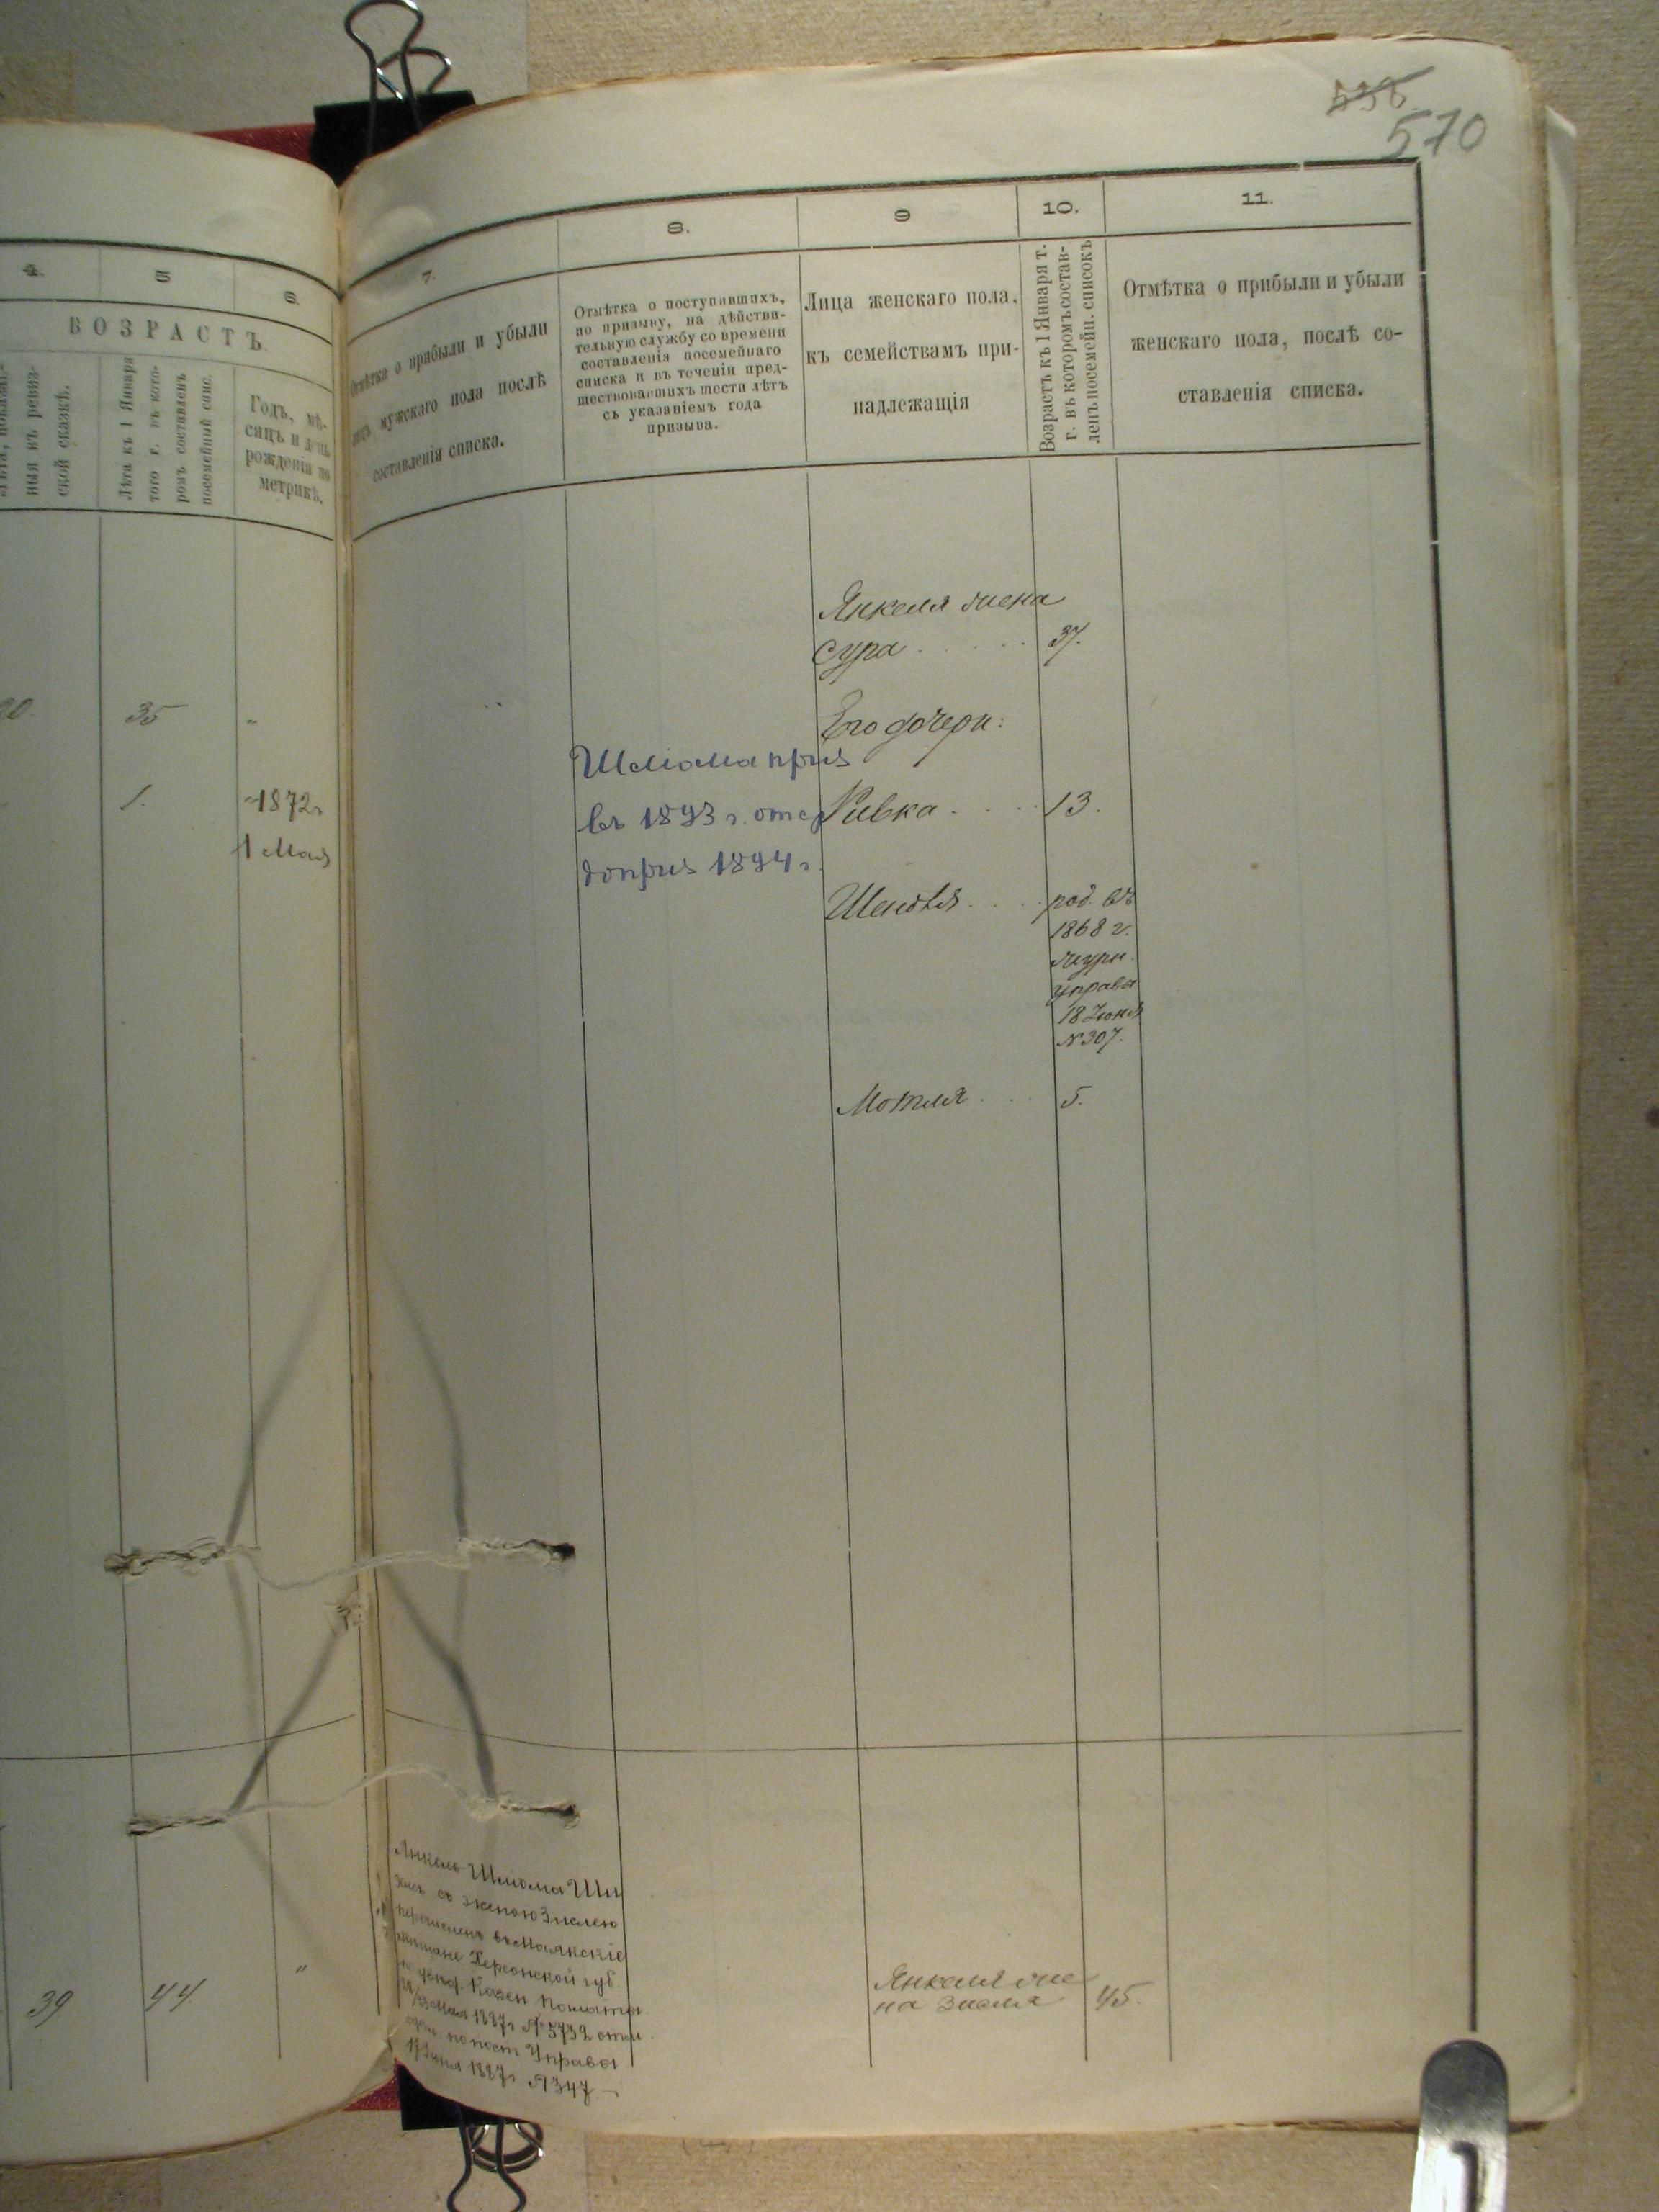 538
570
4.
5
6.
7.
8.
9
10.
11.
ВОЗРАСТЪ.
ныя въ ревиз-
ской сказкѣ.
Лѣта къ 1 Января
того г. въ кото-
ромъ составленъ
посемейный спис.
Годъ, мѣ-
сяцъ и день
рожденія по
метрикѣ.
Отмѣтка о прибыли и убыли
лицъ мужскаго пола послѣ
составленія списка.
Отмѣтка о поступившихъ,
по призыву, на дѣйстви-
тельную службу со времени
составленія посемейнаго
списка и въ теченіи пред-
шествовавшихъ шести лѣтъ
съ указаніемъ года
призыва.
Лица женскаго пола,
къ семействамъ при-
надлежащія
Возрастъ къ 1 Января т.
г. въ которомъ состав-
ленъ посемейн. списокъ
Отмѣтка о прибыли и убыли
женскаго пола, послѣ со-
ставленія списка.
Янкеля жена
Сура 37.
35 "
Его дочери:
Шліома приз
1. 1872 г
1 Мая
въ 1893 г. отср
до приз 1894 г.
Ривка 13.
Шендля род. въ
1868 г.
журн.
управы
18 Іюня
№307.
Мотля 5.
Янкель Шліома
съ женою Зислею
перечисленъ въ Маякскіе
мѣщане Херсонской губ.
Казен Палаты
Мая 1887 г №5732
по пост Управы
1887 г №347
39 44 "
Янкеля же
на Зисля 45.